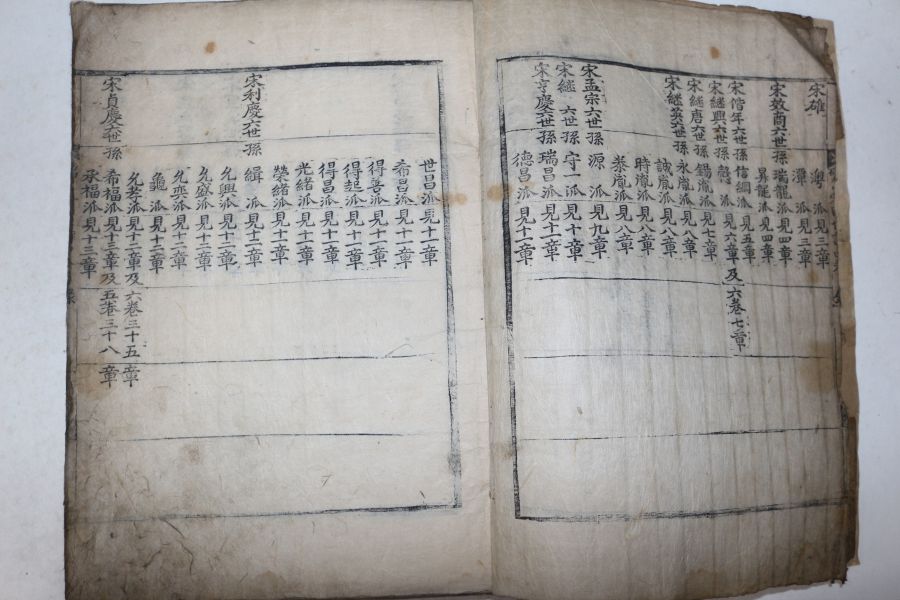 宋碓
粤派見三章
潭派見三章
宋效商六世孫
昇龍派見四章
瑞龍派見四章
宋偕年六世孫
信綱派見五章
宋繼興六世孫
派見六章及六卷七章
宋繼唐六世孫
錫胤派見七章
宋繼英六世孫
永胤派見八章
誠胤派見八章
時胤派見八章
恭胤派見八章
宋孟宗六世孫
源派見九章
宋繼六世孫
守一派見十章
宋亨慶六世孫
瑞昌派見十章
德昌派見十一章
世昌派見十一章
希昌派見十一章
得善派見十一章
得起派見十一章
得昌派見十一章
光緒派見十一章
榮緒派見十一章
宋利慶六世孫
緝派見十二章
允興派見十二章
允寂派見十二章
允奕派見十二章
龜派見十二章
宋貞慶六世孫
允孝派見十三章及六卷三十五章
希福派見十三章及五卷三十八章
承福派見十三章